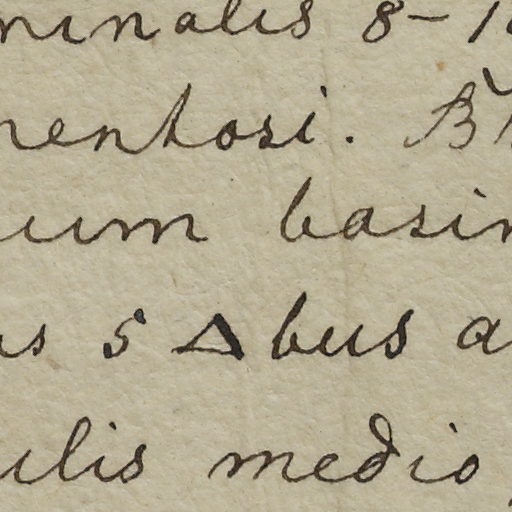 minalis 8-1
mentosi. B
um basin
us 5 Δbus a
ulis medio